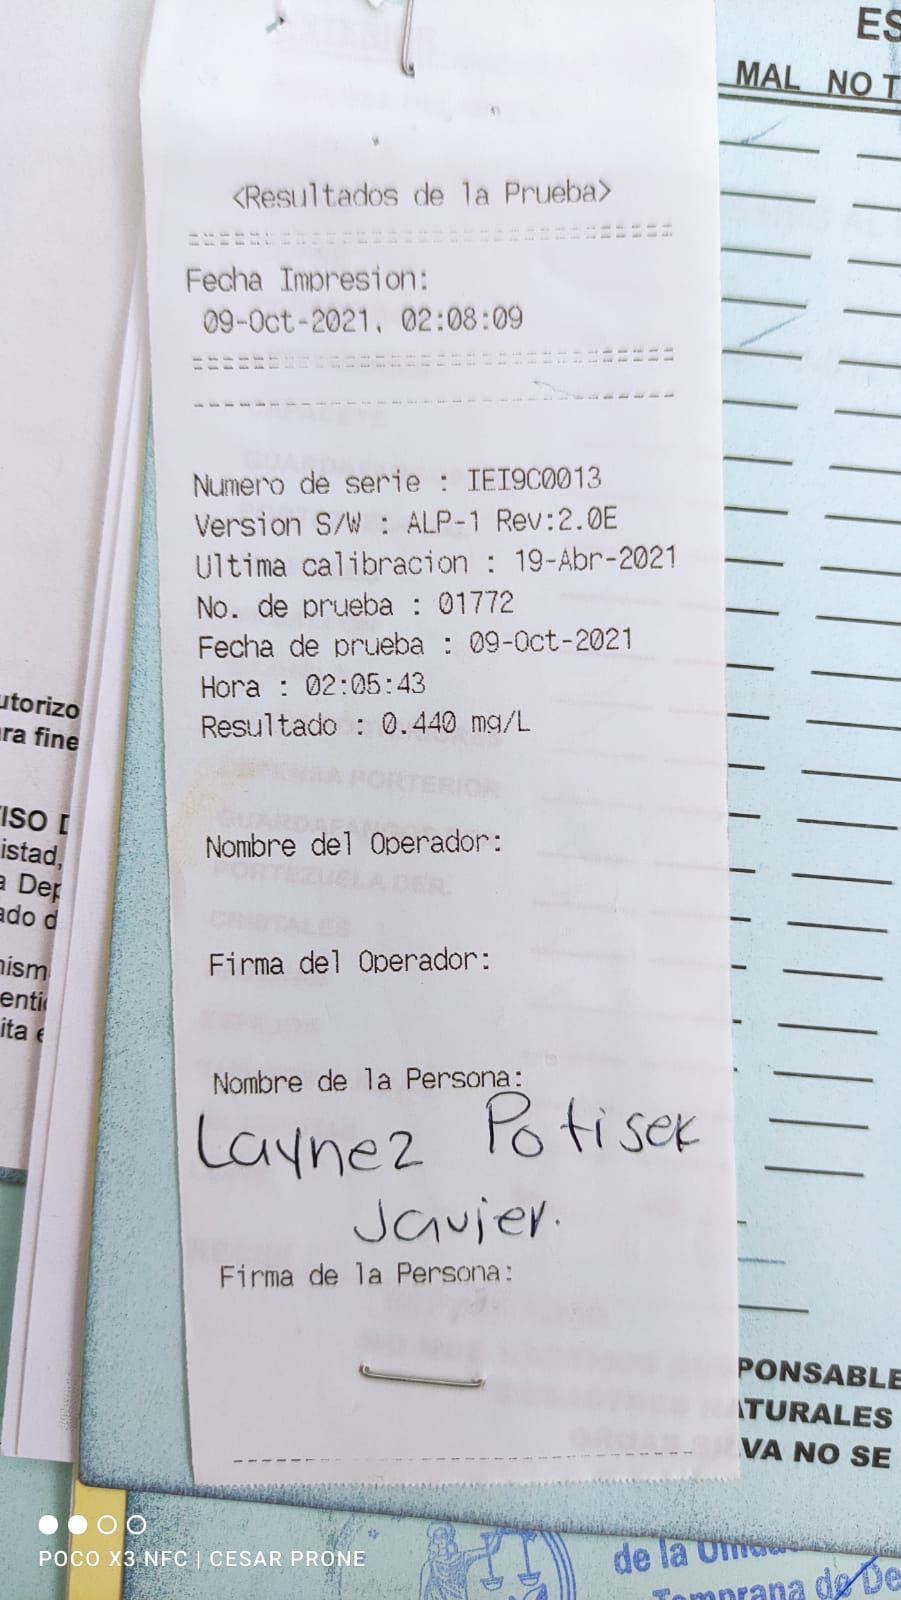 ES
MAL NO T
<Resultados de la Prueba>
================================
Fecha Impresion:
09-Oct-2021, 02:08:09
================================
--------------------------------
Numero de serie : IEI9C0013
Version S/W : ALP-1 Rev:2.0E
Ultima calibracion : 19-Abr-2021
No. de prueba : 01772
Fecha de prueba : 09-Oct-2021
Hora : 02:05:43
Resultado : 0.440 mg/L
Nombre del Operador:
Firma del Operador:
Nombre de la Persona:
Laynez Potisek
Javier.
Firma de la Persona:
--------------------------------
utorizo
ra fine
istad,
a Dep
ado d
nism
enti
ita e
PONSABLE
ATURALES
VA NO SE
de la
Temprana de De
POCO X3 NFC | CESAR PRONE